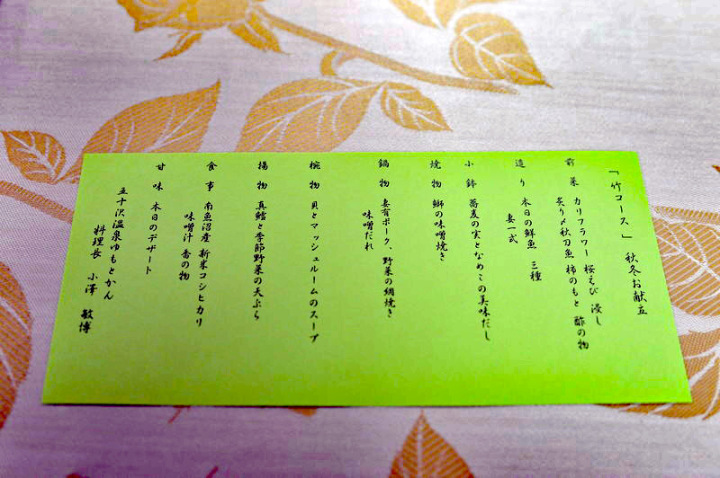 「竹コース」 秋冬お献立
前菜 カリフラワー 桜えび 浸し
炙り〆秋刀魚 柿のもと 酢の物
造り 本日の鮮魚 三種
妻一式
小鉢 蕎麦の実となめこの美味だし
焼物 鰤の味噌焼き
鍋物 妻有ポーク、野菜の鍋焼き
味噌だれ
椀物 貝とマッシュルームのスープ
揚物 真鱈と季節野菜の天ぷら
食事 南魚沼産 新米コシヒカリ
味噌汁 香の物
甘味 本日のデザート
五十沢温泉ゆもとかん
料理長 小澤 敏博